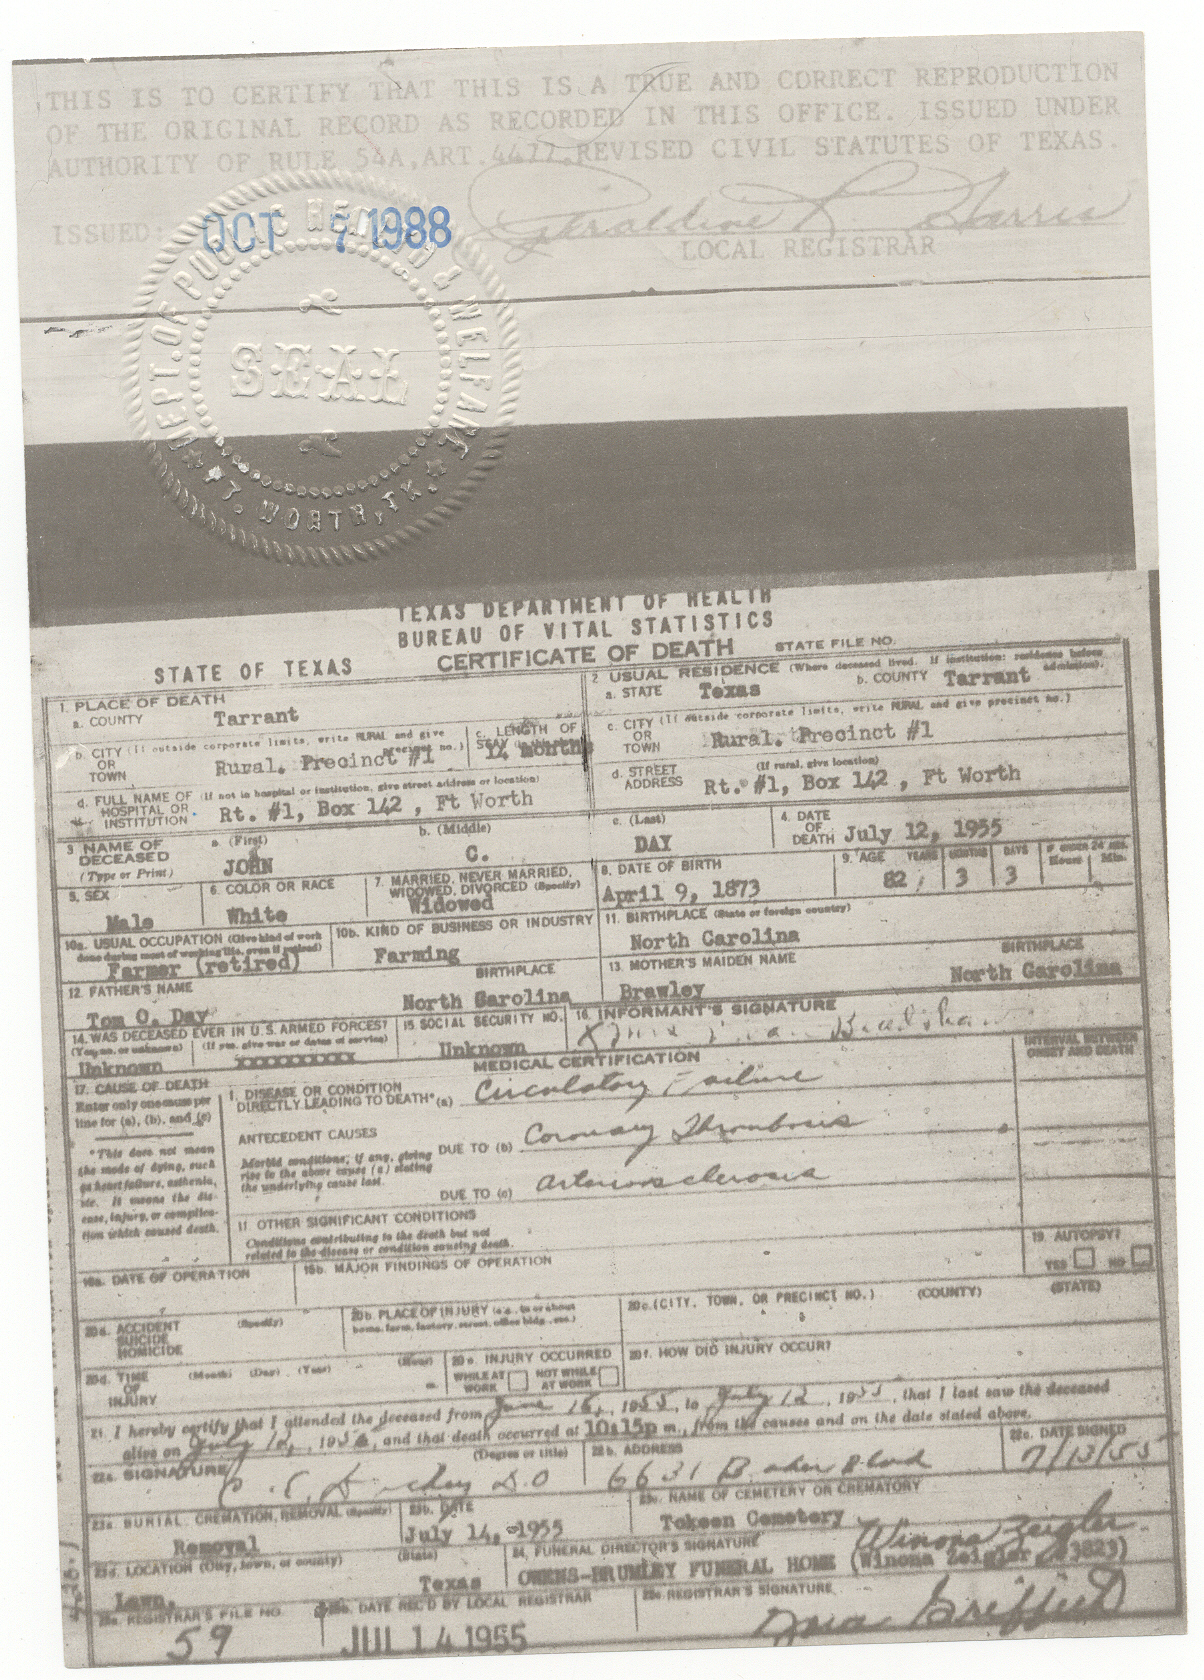 THIS IS TO CERTIFY THAT THIS IS A TRUE AND CORRECT REPRODUCTION
OF THE ORIGINAL RECORD AS RECORDED IN THIS OFFICE. ISSUED UNDER
AUTHORITY OF RULE 54A,ART.4477,REVISED CIVIL STATUTES OF TEXAS.
ISSUED: OCT 7 1988 Geraldine L. Harris
LOCAL REGISTRAR
DEPT. OF PUBLIC HEALTH & WELFARE
SEAL
FT. WORTH, TX.
TEXAS DEPARTMENT OF HEALTH
BUREAU OF VITAL STATISTICS
STATE OF TEXAS CERTIFICATE OF DEATH STATE FILE NO.
1. PLACE OF DEATH
a. COUNTY Tarrant
2. USUAL RESIDENCE (Where deceased lived. If institution: residence before admission).
a. STATE Texas b. COUNTY Tarrant
b. CITY (If outside corporate limits, write RURAL and give precinct no.)
OR
TOWN Rural. Precinct #1
c. LENGTH OF
STAY 14 months
c. CITY (If outside corporate limits, write RURAL and give precinct no.)
OR
TOWN Rural. Precinct #1
d. FULL NAME OF (If not in hospital or institution, give street address or location)
HOSPITAL OR
INSTITUTION Rt. #1, Box 142 , Ft Worth
d. STREET (If rural, give location)
ADDRESS Rt. #1, Box 142 , Ft Worth
3. NAME OF
DECEASED
(Type or Print)
a. (First) JOHN
b. (Middle) C.
c. (Last) DAY
4. DATE
OF
DEATH July 12, 1955
5. SEX Male
6. COLOR OR RACE White
7. MARRIED, NEVER MARRIED,
WIDOWED, DIVORCED (Specify)
Widowed
8. DATE OF BIRTH
April 9, 1873
9. AGE YEARS 82 MONTHS 3 DAYS 3 IF UNDER 24 HRS. Hours Min.
10a. USUAL OCCUPATION (Give kind of work
done during most of working life, even if retired)
Farmer (retired)
10b. KIND OF BUSINESS OR INDUSTRY
Farming
11. BIRTHPLACE (State or foreign country)
North Carolina
12. FATHER'S NAME BIRTHPLACE
Tom O. Day North Carolina
13. MOTHER'S MAIDEN NAME BIRTHPLACE
Brawley North Carolina
14. WAS DECEASED EVER IN U.S. ARMED FORCES?
(Yes, no, or unknown) (If yes, give war or dates of service)
Unknown xxxxxxxxxx
15. SOCIAL SECURITY NO.
Unknown
16. INFORMANT'S SIGNATURE
Bradshaw
MEDICAL CERTIFICATION
INTERVAL BETWEEN
ONSET AND DEATH
17. CAUSE OF DEATH
Enter only one cause per
line for (a), (b), and (c)
*This does not mean
the mode of dying, such
as heart failure, asthenia,
etc. It means the dis-
ease, injury, or complica-
tion which caused death.
I. DISEASE OR CONDITION
DIRECTLY LEADING TO DEATH* (a) Circulatory Failure
ANTECEDENT CAUSES
Morbid conditions, if any, giving
rise to the above cause (a) stating
the underlying cause last.
DUE TO (b) Coronary Thrombosis
DUE TO (c) arteriosclerosis
II OTHER SIGNIFICANT CONDITIONS
Conditions contributing to the death but not
related to the disease or condition causing death.
18a. DATE OF OPERATION
18b. MAJOR FINDINGS OF OPERATION
19. AUTOPSY?
YES NO
20a. ACCIDENT (Specify)
SUICIDE
HOMICIDE
20b. PLACE OF INJURY (e.g., in or about
home, farm, factory, street, office bldg., etc.)
20c. (CITY, TOWN, OR PRECINCT NO.) (COUNTY) (STATE)
20d. TIME (Month) (Day) (Year) (Hour)
OF
INJURY m.
20e. INJURY OCCURRED
WHILE AT WORK NOT WHILE AT WORK
20f. HOW DID INJURY OCCUR?
21. I hereby certify that I attended the deceased from June 16, 1955, to July 12, 1955, that I last saw the deceased
alive on July 12, 1955, and that death occurred at 10:15p m., from the causes and on the date stated above.
22a. SIGNATURE (Degree or title)
D.O
22b. ADDRESS
6631 Baker Blvd
22c. DATE SIGNED
7/13/55
23a. BURIAL, CREMATION, REMOVAL (Specify)
Removal
23b. DATE
July 14, 1955
23c. NAME OF CEMETERY OR CREMATORY
Tokeen Cemetery
23d. LOCATION (City, town, or county) (State)
Lawn, Texas
24. FUNERAL DIRECTOR'S SIGNATURE Winona Zeigler
OWENS-BRUMLEY FUNERAL HOME (Winona Zeigler #3823)
25a. REGISTRAR'S FILE NO.
59
25b. DATE REC'D BY LOCAL REGISTRAR
JUL 14 1955
25c. REGISTRAR'S SIGNATURE
Griffith